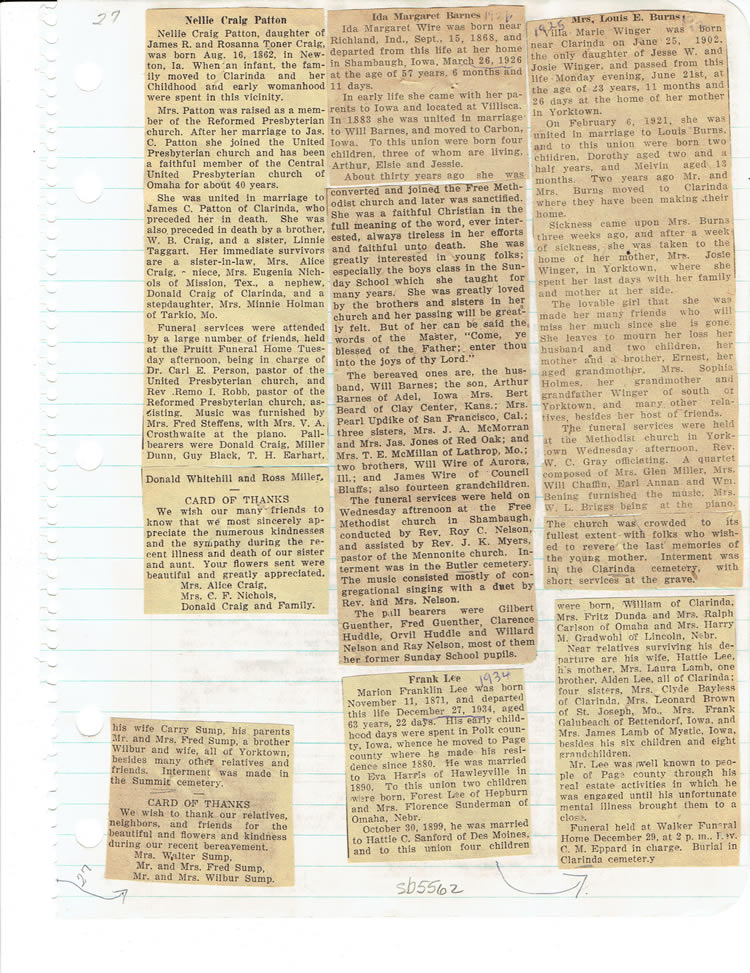 27
Nellie Craig Patton
Nellie Craig Patton, daughter of
James R. and Rosanna Toner Craig,
was born Aug. 16, 1862, in New-
ton, Ia. When an infant, the fam-
ily moved to Clarinda and her
Childhood and early womanhood
were spent in this vicinity.
Mrs. Patton was raised as a mem-
ber of the Reformed Presbyterian
church. After her marriage to Jas.
C. Patton she joined the United
Presbyterian church and has been
a faithful member of the Central
United Presbyterian church of
Omaha for about 40 years.
She was united in marriage to
James C. Patton of Clarinda, who
preceded her in death. She was
also preceded in death by a brother,
W. B. Craig, and a sister, Linnie
Taggart. Her immediate survivors
are a sister-in-law, Mrs. Alice
Craig, niece, Mrs. Eugenia Nich-
ols of Mission, Tex., a nephew,
Donald Craig of Clarinda, and a
stepdaughter, Mrs. Minnie Holman
of Tarkio, Mo.
Funeral services were attended
by a large number of friends, held
at the Pruitt Funeral Home Tues-
day afternoon, being in charge of
Dr. Carl E. Person, pastor of the
United Presbyterian church, and
Rev. Remo I. Robb, pastor of the
Reformed Presbyterian church, as-
sisting. Music was furnished by
Mrs. Fred Steffens, with Mrs. V. A.
Crosthwaite at the piano. Pall-
bearers were Donald Craig, Miller
Dunn, Guy Black, T. H. Earhart,
Donald Whitehill and Ross Miller.
CARD OF THANKS
We wish our many friends to
know that we most sincerely ap-
preciate the numerous kindnesses
and the sympathy during the re-
cent illness and death of our sister
and aunt. Your flowers sent were
beautiful and greatly appreciated.
Mrs. Alice Craig,
Mrs. C. F. Nichols,
Donald Craig and Family.
his wife Carry Sump, his parents
Mr. and Mrs. Fred Sump, a brother
Wilbur and wife, all of Yorktown,
besides many other relatives and
friends. Interment was made in
the Summit cemetery.
CARD OF THANKS
We wish to thank our relatives,
neighbors, and friends for the
beautiful and flowers and kindness
during our recent bereavement.
Mrs. Walter Sump,
Mr. and Mrs. Fred Sump,
Mr. and Mrs. Wilbur Sump.
27
Ida Margaret Barnes 1926
Ida Margaret Wire was born near
Richland, Ind., Sept., 15, 1868, and
departed from this life at her home
in Shambaugh, Iowa, March 26, 1926
at the age of 57 years, 6 months and
11 days.
In early life she came with her pa-
rents to Iowa and located at Villisca.
In 1883 she was united in marriage
to Will Barnes, and moved to Carbon,
Iowa. To this union were born four
children, three of whom are living,
Arthur, Elsie and Jessie.
About thirty years ago she was
converted and joined the Free Meth-
odist church and later was sanctified.
She was a faithful Christian in the
full meaning of the word, ever inter-
ested, always tireless in her efforts
and faithful unto death. She was
greatly interested in young folks;
especially the boys class in the Sun-
day School which she taught for
many years. She was greatly loved
by the brothers and sisters in her
church and her passing will be great-
ly felt. But of her can be said the
words of the Master, "Come, ye
blessed of the Father; enter thou
into the joys of thy Lord."
The bereaved ones are, the hus-
band, Will Barnes; the son, Arthur
Barnes of Adel, Iowa Mrs. Bert
Beard of Clay Center, Kans.; Mrs.
Pearl Updike of San Francisco, Cal.;
three sisters, Mrs. J. A. McMorran
and Mrs. Jas. Jones of Red Oak; and
Mrs. T. E. McMillan of Lathrop, Mo.;
two brothers, Will Wire of Aurora,
Ill.; and James Wire of Council
Bluffs; also fourteen grandchildren.
The funeral services were held on
Wednesday aftrenoon at the Free
Methodist church in Shambaugh,
conducted by Rev. Roy C. Nelson,
and assisted by Rev. J. K. Myers,
pastor of the Mennonite church. In-
terment was in the Butler cemetery.
The music consisted mostly of con-
gregational singing with a duet by
Rev. and Mrs. Nelson.
The pall bearers were Gilbert
Guenther, Fred Guenther, Clarence
Huddle, Orvil Huddle and Willard
Nelson and Ray Nelson, most of them
her former Sunday School pupils.
Frank Lee
1934
Marion Franklin Lee was born
November 11, 1871, and departed
this life December 27, 1934, aged
63 years, 22 days. His early child-
hood days were spent in Polk coun-
ty, Iowa, whence he moved to Page
county where he made his resi-
dence since 1880. He was married
to Eva Harris of Hawleyville in
1890. To this union two children
were born, Forest Lee of Hepburn
and Mrs. Florence Sunderman of
Omaha, Nebr.
October 30, 1899, he was married
to Hattie C. Sanford of Des Moines,
and to this union four children
sb5562
Mrs. Louis E. Burns
1926
Villa Marie Winger was born
near Clarinda on June 25, 1902.
the only daughter of Jesse W. and
Josie Winger, and passed from this
life Monday evening, June 21st, at
the age of 23 years, 11 months and
26 days at the home of her mother
in Yorktown.
On February 6, 1921, she was
united in marriage to Louis Burns,
and to this union were born two
children, Dorothy aged two and a
half years, and Melvin aged 13
months. Two years ago Mr. and
Mrs. Burns moved to Clarinda
where they have been making their
home.
Sickness came upon Mrs. Burns
three weeks ago, and after a week
of sickness, she was taken to the
home of her mother, Mrs. Josie
Winger, in Yorktown, where she
spent her last days with her family
and mother at her side.
The lovable girl that she was
made her many friends who will
miss her much since she is gone.
She leaves to mourn her loss her
husband and two children, her
mother and a brother, Ernest, her
aged grandmother. Mrs. Sophia
Holmes, her grandmother and
grandfather Winger of south of
Yorktown, and many other rela-
tives, besides her host of friends.
The funeral services were held
at the Methodist church in York-
town Wednesday afternoon, Rev.
W. C. Gray officiating. A quartet
composed of Mrs. Glen Miller, Mrs.
Will Chaffin, Earl Annan and Wm.
Bening furnished the music, Mrs.
W. L. Briggs being at the piano.
The church was crowded to its
fullest extent with folks who wish-
ed to revere the last memories of
the young mother. Interment was
in the Clarinda cemetery, with
short services at the grave.
were born, William of Clarinda,
Mrs. Fritz Dunda and Mrs. Ralph
Carlson of Omaha and Mrs. Harry
M. Gradwohl of Lincoln, Nebr.
Near relatives surviving his de-
parture are his wife, Hattie Lee,
his mother, Mrs. Laura Lamb, one
brother, Alden Lee, all of Clarinda;
four sisters, Mrs. Clyde Bayless
of Clarinda, Mrs. Leonard Brown
of St. Joseph, Mo., Mrs. Frank
Galubeach of Bettendorf, Iowa, and
Mrs. James Lamb of Mystic, Iowa,
besides his six children and eight
grandchildren.
Mr. Lee was well known to peo-
ple of Page county through his
real estate activities in which he
was engaged until his unfortunate
mental illness brought them to a
close.
Funeral held at Walker Funeral
Home December 29, at 2 p. m., Rev.
C. M. Eppard in charge. Burial in
Clarinda cemetery